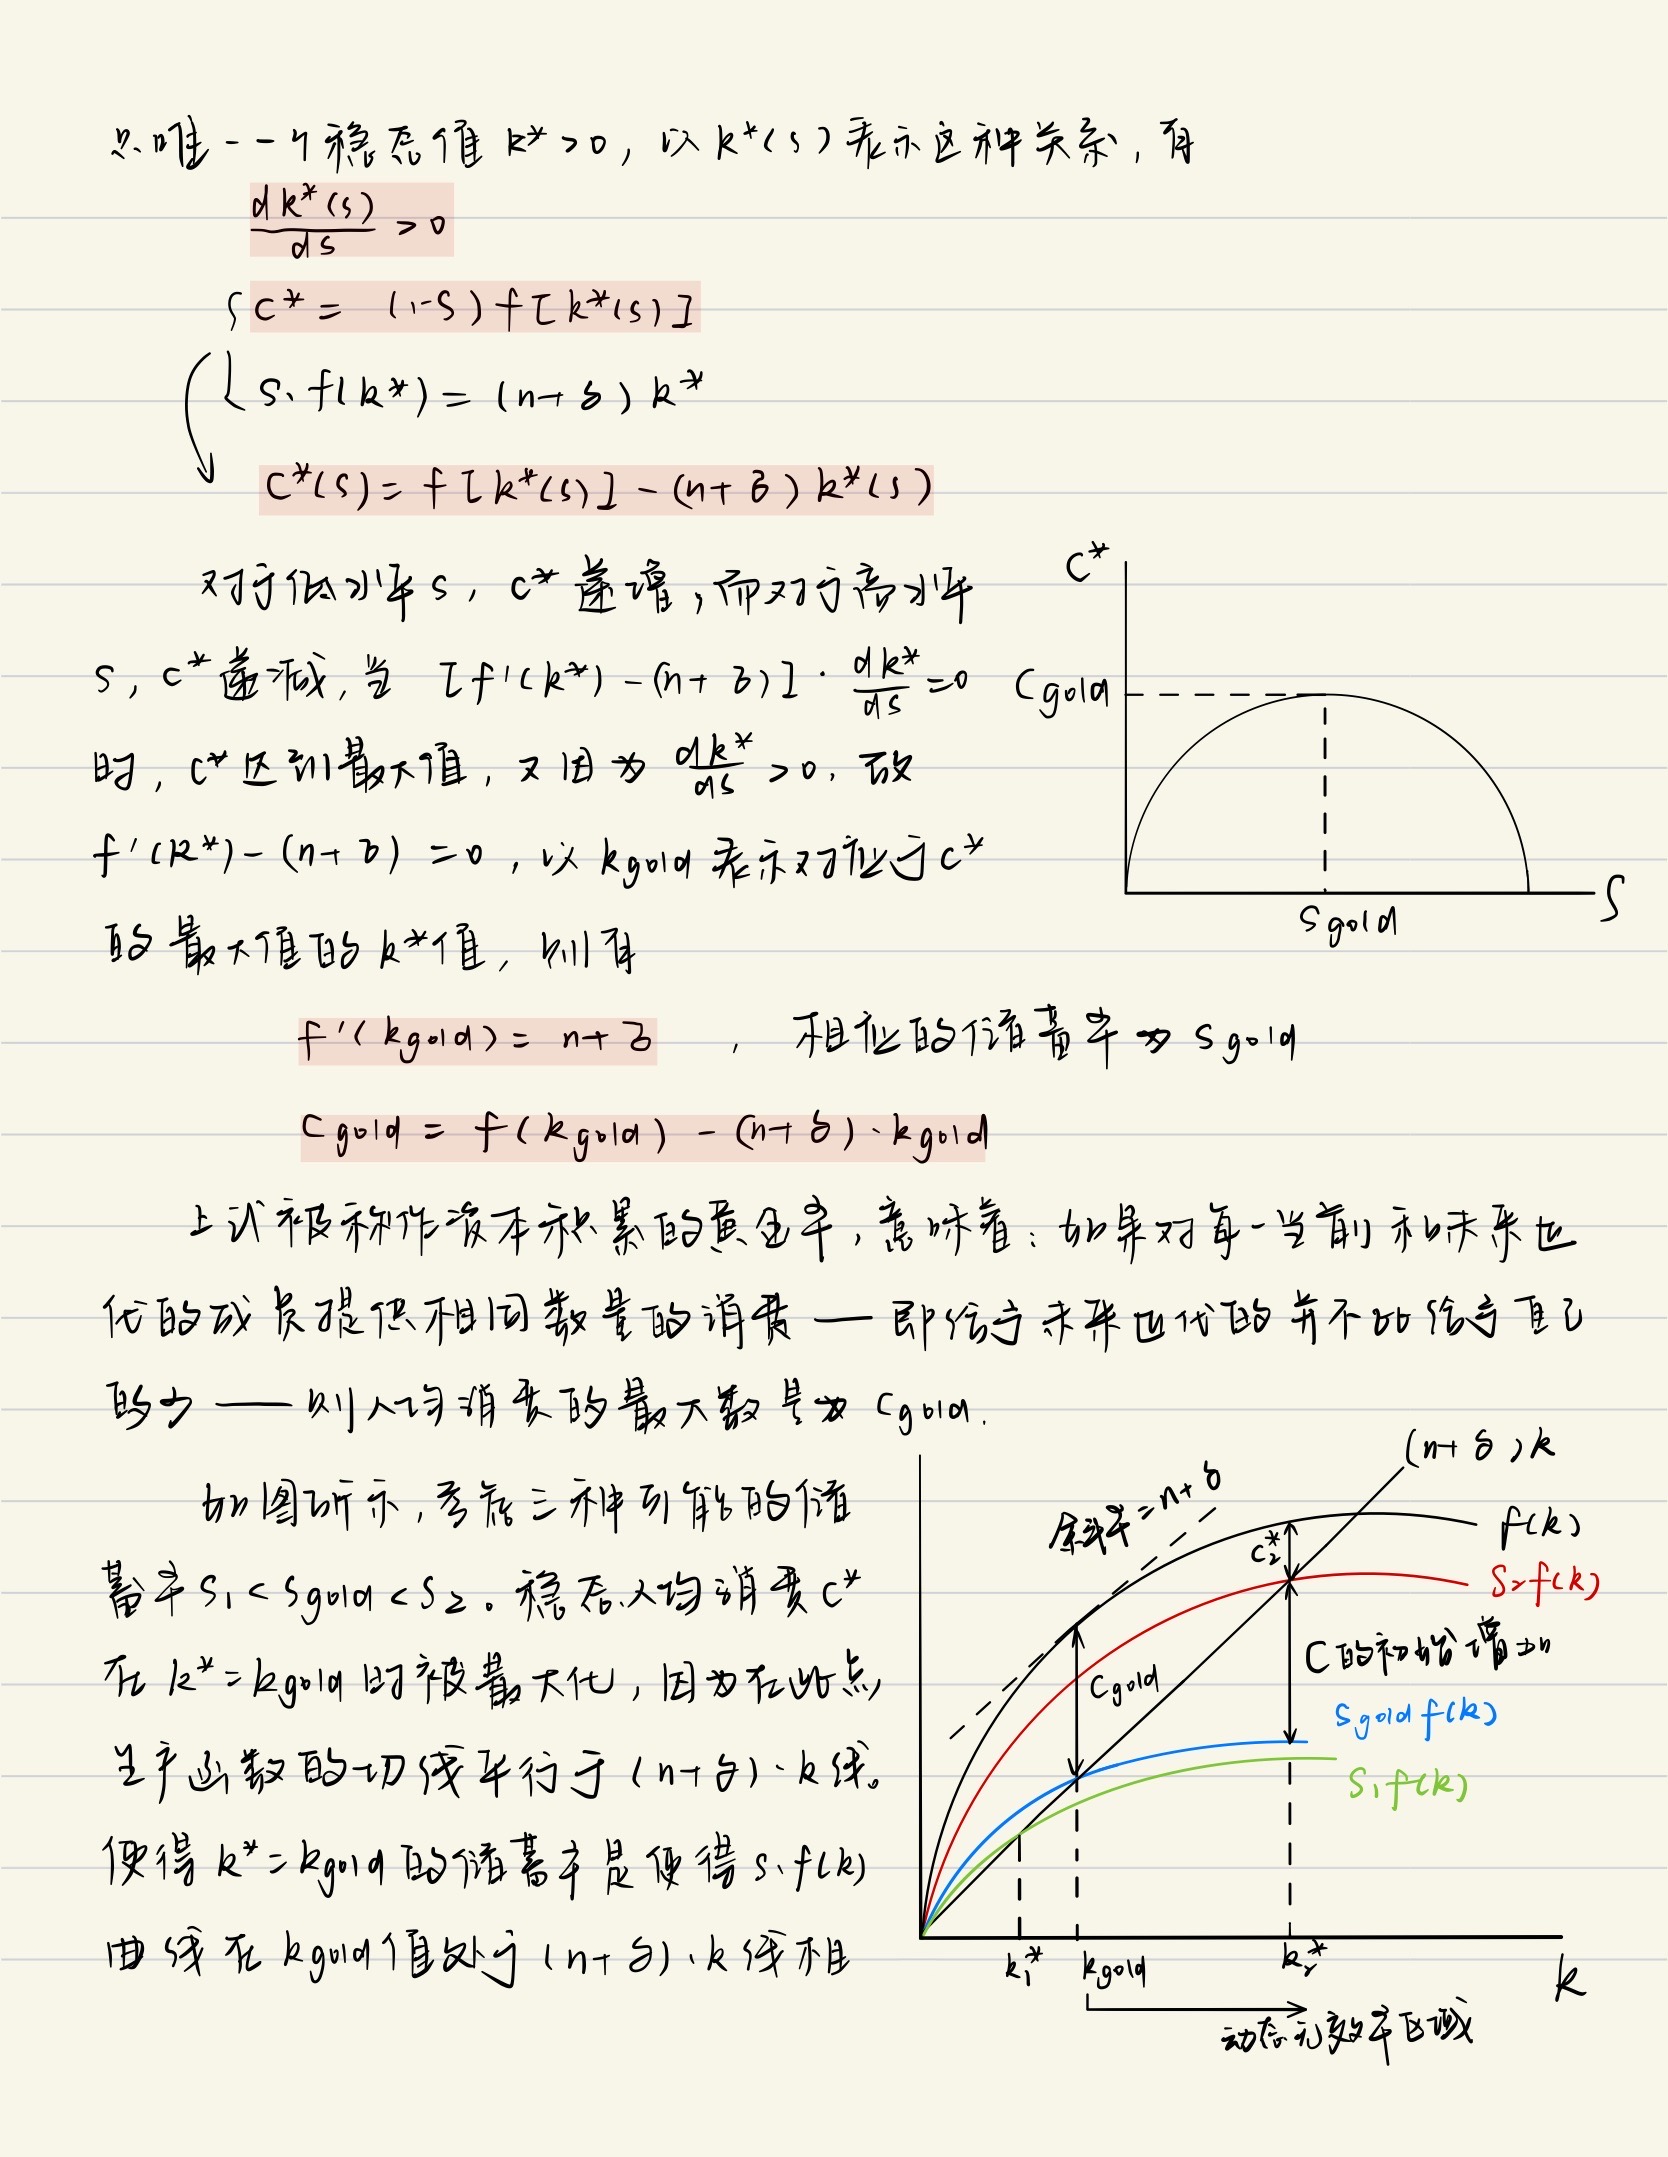 只唯一一个稳态值 k*>0, 以 k*(s) 表示这种关系, 有
dk*(s)/ds > 0
c* = (1-s) f[k*(s)]
s·f(k*) = (n+δ) k*
c*(s) = f[k*(s)] - (n+δ) k*(s)
对于低水平 s, c* 递增, 而对于高水平
s, c* 递减, 当 [f'(k*) - (n+δ)]·dk*/ds = 0
时, c* 达到最大值, 又因为 dk*/ds > 0, 故
f'(k*) - (n+δ) = 0, 以 kgold 表示对应于 c*
的最大值的 k* 值, 则有
c*
cgold
sgold
s
f'(kgold) = n+δ , 相应的储蓄率为 sgold
cgold = f(kgold) - (n+δ)·kgold
上式被称作资本积累的黄金率, 意味着: 如果对每一当前和未来世
代的成员提供相同数量的消费 —— 即给予未来世代的并不比给予自己
的少 —— 则人均消费的最大数量为 cgold.
如图所示, 考虑三种可能的储
蓄率 s₁ < sgold < s₂。稳态人均消费 c*
在 k* = kgold 时被最大化, 因为在此点,
生产函数的切线平行于 (n+δ)·k 线。
使得 k* = kgold 的储蓄率是使得 s·f(k)
曲线在 kgold 值处于 (n+δ)·k 线相
(n+δ)k
斜率 = n+δ
f(k)
c₂*
s₂f(k)
c的初始增加
cgold
sgold f(k)
s₁f(k)
k₁*
kgold
k₂*
k
动态无效率区域